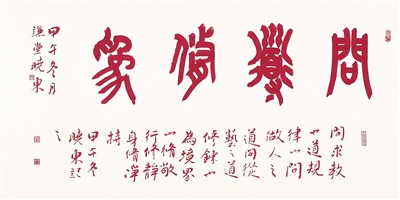 問道修為
甲午冬月
謙堂曉東
問求教
也道規
律也問
做人之
道問從
藝之道
修錬也
為境界
也脩敬
行修靜
身脩淨
持之
甲午冬
曉東記